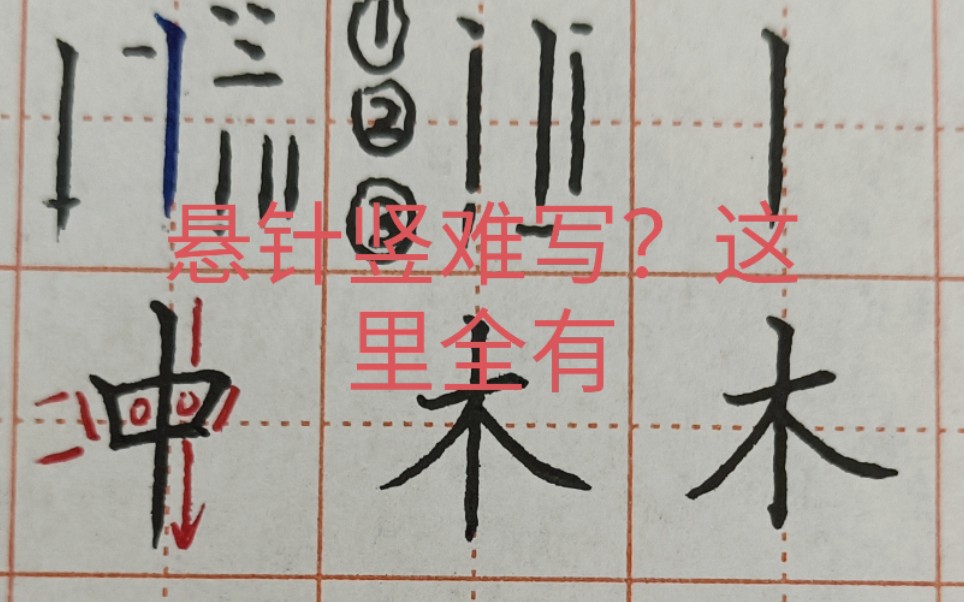 ① ② ③
悬针竖难写？这
里全有
中 木 木